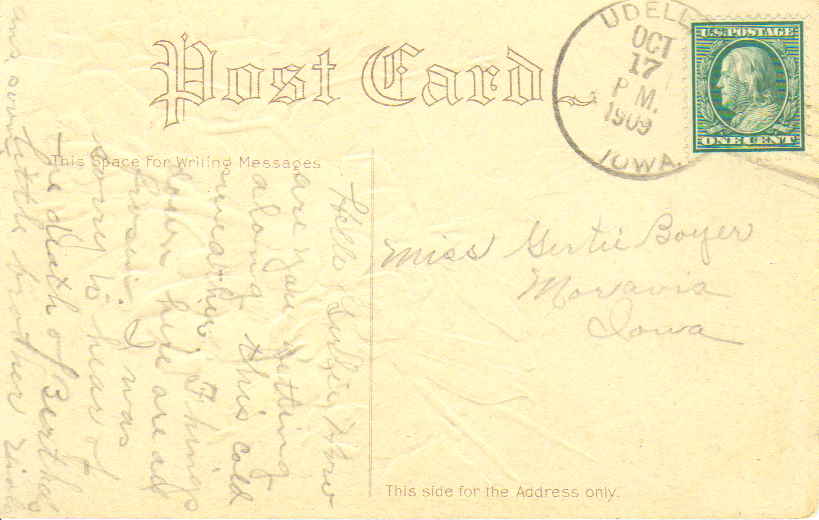 Post Card
UDELL
OCT
17
P M.
1909
IOWA.
U.S. POSTAGE
ONE CENT
This Space For Writing Messages
Hello Gertie, How
are you getting
along this cold
weather. Things
down here are all
frosen. I was
sorry to hear of
the death of Berthas
little brother
ans. soon
Miss Gertie Boyer
Moravia
Iowa
This side for the Address only.